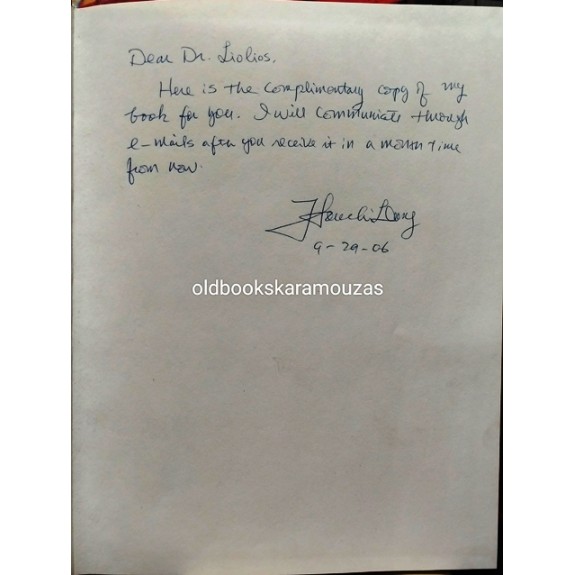 Dear Dr. Liolios,
Here is the complimentary copy of my
book for you. I will communicate through
e-mails after you receive it in a month time
from now.
9-29-06
oldbookskaramouzas